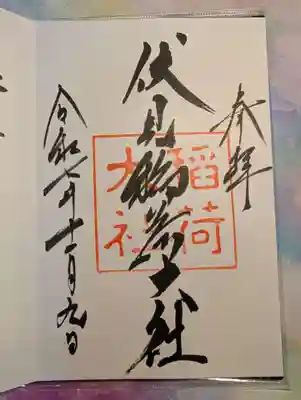 奉拝
伏見稲荷大社
稲荷
大社
令和七年十一月九日